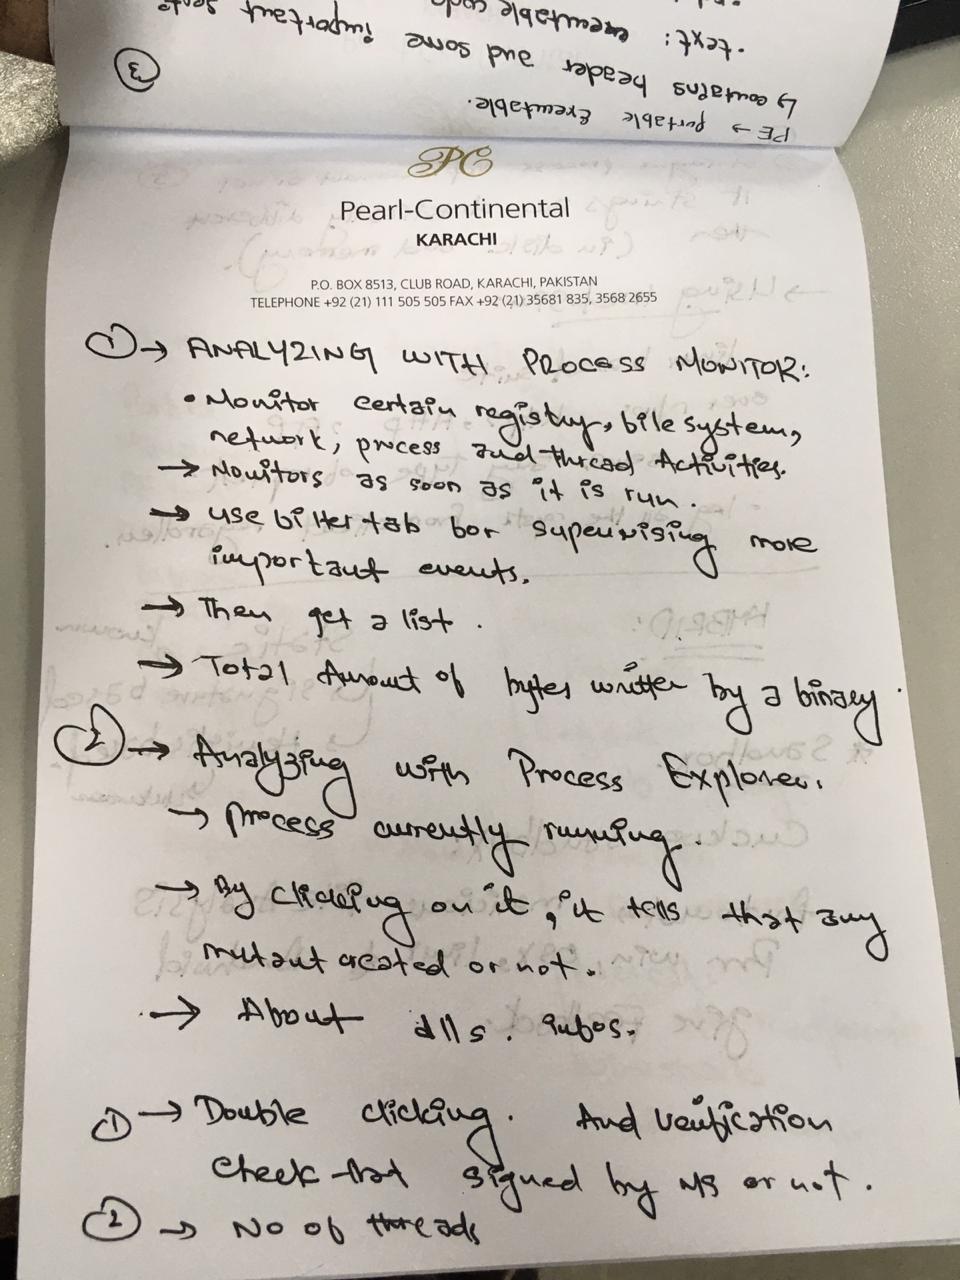 PE → portable Executable.
↳ contains header and some important
• text: executable code
3
PC
Pearl-Continental
KARACHI
P.O. BOX 8513, CLUB ROAD, KARACHI, PAKISTAN
TELEPHONE +92 (21) 111 505 505 FAX +92 (21) 35681 835, 3568 2655
① → ANALYZING WITH PROCESS MONITOR:
• Monitor certain registry, file system,
network, process and thread Activities.
→ Monitors as soon as it is run.
→ use filter tab for supervising more
important events.
→ Then get a list.
→ Total Amount of bytes written by a binary.
② → Analyzing with Process Explorer.
→ process currently running.
→ By clicking on it, it tells that any
mutant created or not.
→ About dlls. infos.
① → Double clicking. And verification
check that signed by MS or not.
② → No of threads